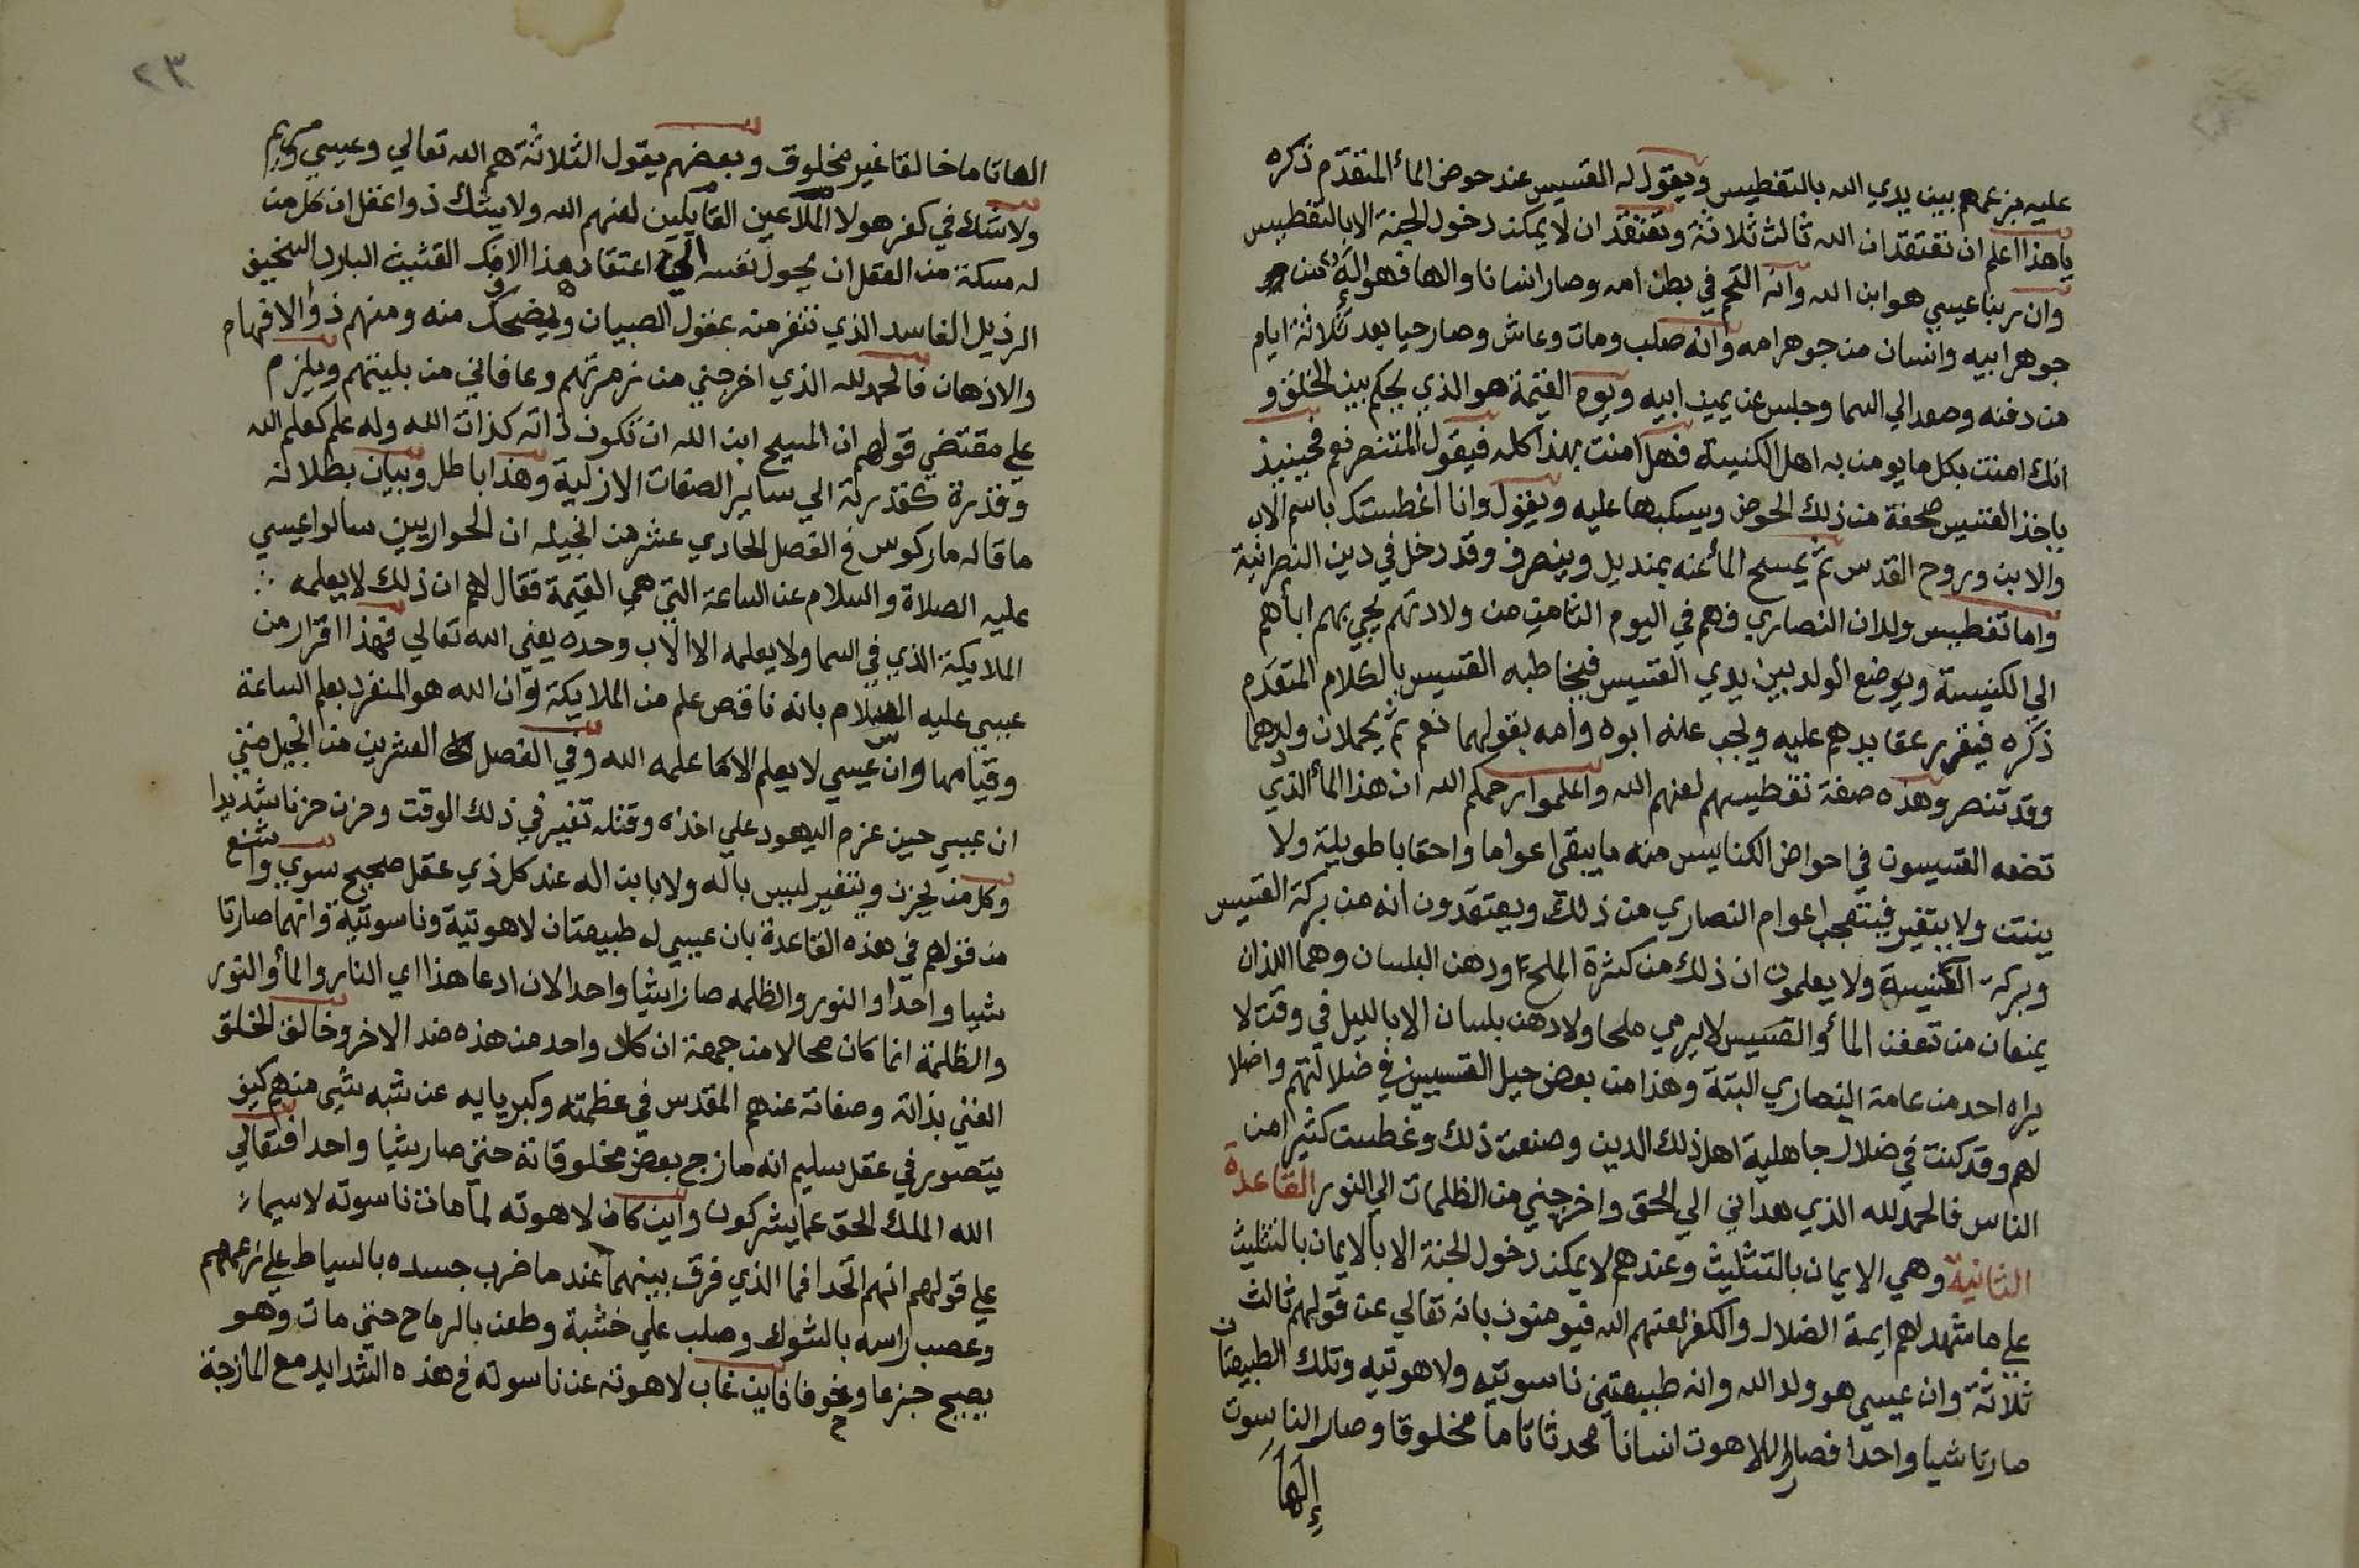 عليه بزعمهم بين يدي الله بالتغطيس ويقول له القسيس عند حوض الماء المتقدم ذكره
ياهذا اعلم ان تعتقد ان الله ثالث ثلاثة وتعتقد ان لا يمكنه دخول الجنة الا بالتغطيس
وان ربنا عيسي هو ابن الله وانه التحم في بطن امه وصار انسانا والها فهو اله من
جوهر ابيه وانسان من جوهر امه وانه صلب ومات وعاش وصار حيا بعد ثلاثة ايام
من دفنه وصعد الي السما وجلس عن يمين ابيه ويوم القيمة هو الذي يحكم بين الخلق و
انك امنت بكل ما يومن به اهل الكنيسة فهل امنت بهذا كله فيقول المتنصر نعم فحينيذ
ياخذ القسيس صحفة من ذلك الحوض ويسكبها عليه ويقول وانا اغطستك باسم الاب
والابن وروح القدس ثم يمسح الماء عنه بمنديل وينصرف وقد دخل في دين النصرانية
واما تغطيس ولدان النصاري فهم في اليوم الثامن من ولادتهم يجي بهم اباهم
الي الكنيسة ويوضع الولد بين يدي القسيس فيخاطبه القسيس بالكلام المتقدم
ذكره فيقرر عقايدهم عليه ويجب عنه ابوه وامه بقولهما نعم ثم يحملان ولدهما
وقد تنصر وهذه صفة تغطيسهم لعنهم الله واعلموا رحمكم الله ان هذا الماء الذي
تضعه القسيسون في احواض الكنايس منه ما يبقي اعواما واحقابا طويلة ولا
ينتن ولا يتغير فيتعجب اعوام النصاري من ذلك ويعتقدون انه من بركة القسيس
وبركة الكنيسة ولا يعلمون ان ذلك من كثرة الملح ودهن البلسان وهما اللذان
يمنعان من تعفن الماء والقسيس لا يرمي ملحا ولا دهن بلسان الا بالليل في وقت لا
يراه احد من عامة النصاري البتة وهذا من بعض حيل القسيسين في ضلالتهم واضلا
لهم وقد كنت في ضلال جاهلية اهل ذلك الدين وصنعت ذلك وغطست كثيرا من
الناس فالحمد لله الذي هداني الي الحق واخرجني من الظلمات الي النور القاعدة
الثانية وهي الايمان بالتثليث وعندهم لا يمكن دخول الجنة الا بالايمان بالتثليث
علي ما شهد لهم ايمة الضلال والكفر لعنهم الله فيومنون بانه تعالي عن قولهم ثالث
ثلاثة وان عيسي هو ولد الله وانه طبيعتين ناسوتيه ولاهوتيه وتلك الطبيعتان
صارتا شيا واحدا فصار اللاهوت انسانا محدثا تاما مخلوقا وصار الناسوت
إلها
٢٣
الها تاما خالقا غير مخلوق وبعضهم يقول الثلاثة هم الله تعالي وعيسي ومريم
ولا شك في كفر هولا الملاعين القايلين لعنهم الله ولا يشك ذوا عقل ان كل من
له مسكة من العقل ان يحول نفسه الي اعتقاد هذا الافك الغثيث البارد السخيف
الرذيل الفاسد الذي تنفر منه عقول الصبيان ويضحك منه ومنهم ذوا الافهام
والاذهان فالحمد لله الذي اخرجني من زمرتهم وعافاني من بليتهم ويلزم
علي مقتضي قولهم ان المسيح ابن الله ان تكون ذاته كذات الله وله علم كعلم الله
وقدرة كقدرته الي ساير الصفات الازلية وهذا باطل وبيان بطلانه
ما قاله ماركوس في الفصل الحادي عشر من انجيله ان الحواريين سالوا عيسي
عليه الصلاة والسلام عن الساعة التي هي القيمة فقال لهم ان ذلك لا يعلمه ∴
الملايكة الذي في السما ولا يعلمه الا الاب وحده يعني الله تعالي فهذا اقرار من
عيسي عليه السلام بانه ناقص علم من الملايكة وان الله هو المنفرد بعلم الساعة
وقيامها وان عيسي لا يعلم الا ما علمه الله وفي الفصل العشرين من انجيل متي
ان عيسي حين عزم اليهود علي اخذه وقتله تغير في ذلك الوقت وحزن حزنا شديدا
وكل من يحزن ويتغير ليس باله ولا بابن اله عند كل ذي عقل صحيح سوي واشنع
من قولهم في هذه القاعدة بان عيسي له طبيعتان لاهوتية وناسوتية وانهما صارتا
شيا واحدا والنور والظلمه صارا شيا واحد الان ادعا هذا اي النار والماء والنور
والظلمة انما كان محالا من جهة ان كلا واحد من هذه ضد الاخر وخالق الخلق
الغني بذاته وصفاته عنهم المقدس في عظمته وكبريايه عن شبه شي منهم كيف
يتصور في عقل سليم انه مازج بعض مخلوقاته حتي صار شيا واحدا فتعالي
الله الملك الحق عما يشركون واين كان لاهوته لما مات ناسوته لاسيما
علي قولهم انهم اتحدا فما الذي فرق بينهما عندما ضرب جسده بالسياط علي زعمهم
وعصب راسه بالشوك وصلب علي خشبة وطعن بالرماح حتي مات وهو
يصيح جزعا وخوفا فاين غاب لاهوته عن ناسوته في هذه الشدايد مع المازجة